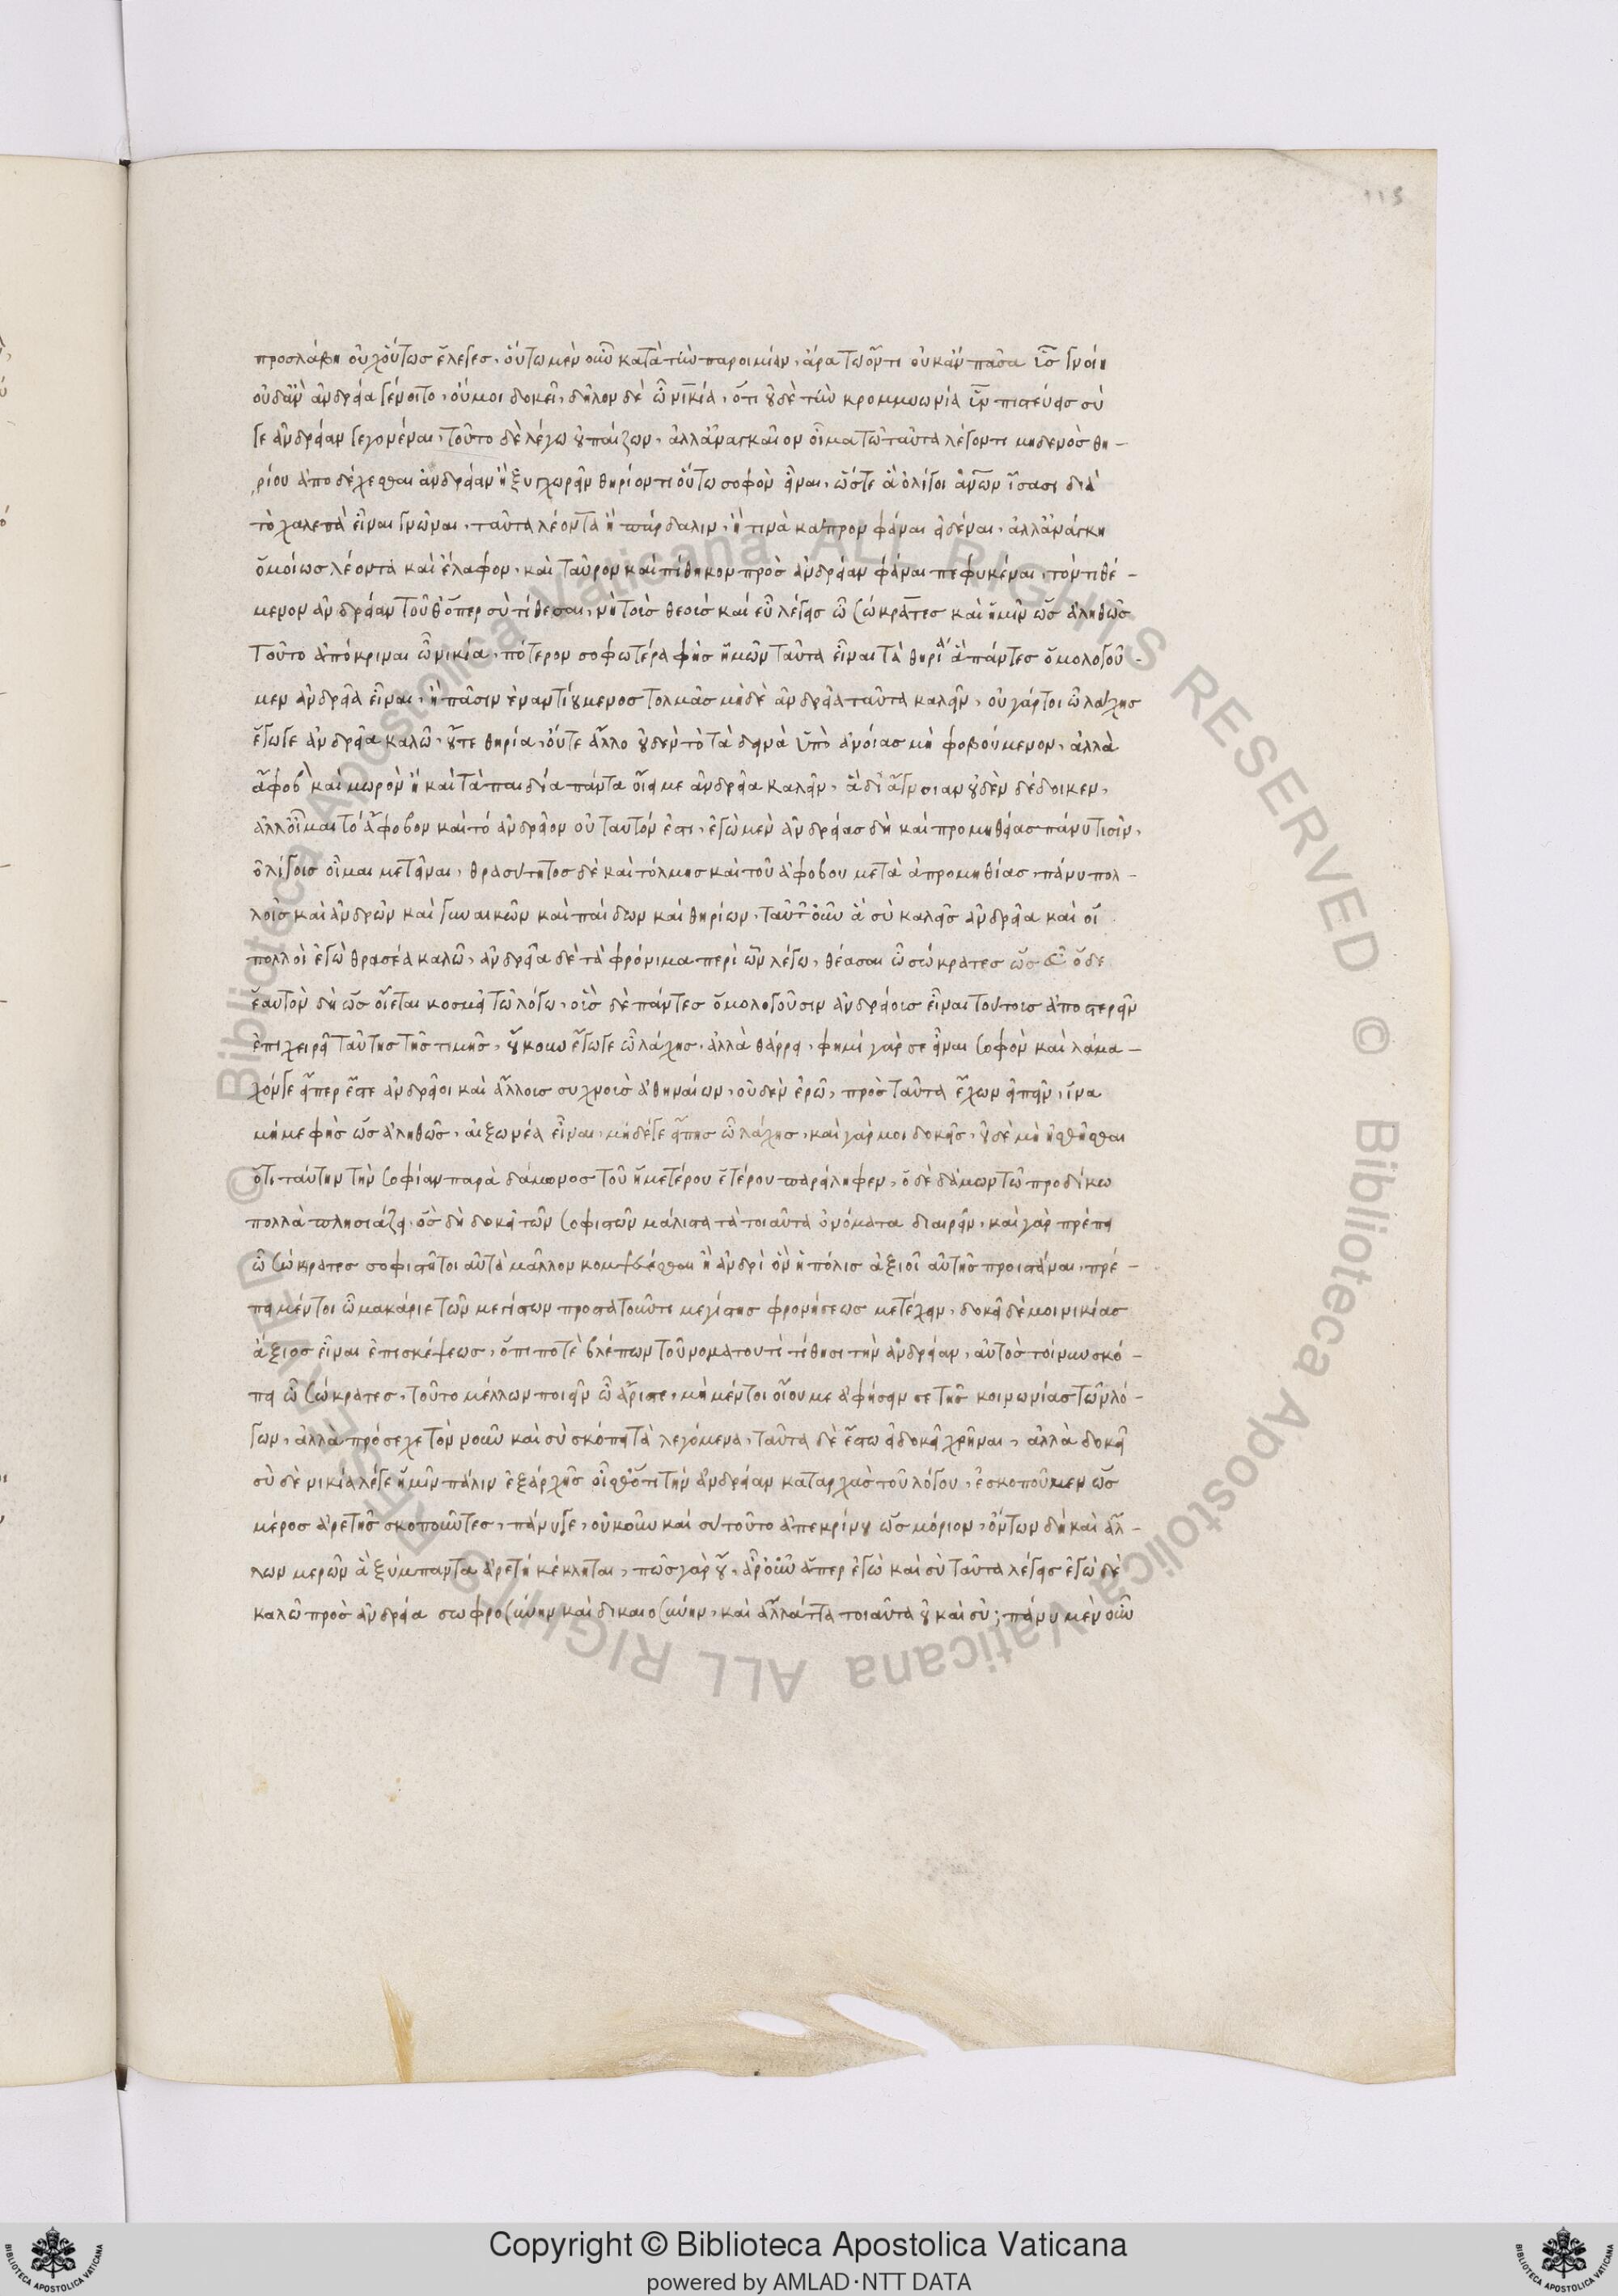 115
προσλάβη οὐχ οὕτως ἔλεγες, οὕτω μὲν οὖν κατὰ τὴν παροιμίαν, ἆρα τῶ ὄντι οὐκ ἂν πᾶσα ὗς γνοίη
οὐδ' ἂν ἀνδρεία γένοιτο, οὔ μοι δοκεῖ, δῆλον δὲ ὦ νικία, ὅτι οὐδὲ τὴν κρομμυωνία ὗν πιστεύεις σύ
γε ἀνδρείαν γεγονέναι, τοῦτο δὲ λέγω οὐ παίζων, ἀλλ' ἀναγκαῖον οἶμαι τῶ ταῦτα λέγοντι μηδενὸς θη-
ρίου ἀποδέχεσθαι ἀνδρείαν ἢ ξυγχωρεῖν θηρίον τι οὕτω σοφὸν εἶναι, ὥστε ἃ ὀλίγοι ἀνων ἴσασι διὰ
τὸ χαλεπὰ εἶναι γνῶναι, ταῦτα λέοντα ἢ πάρδαλιν, ἤ τινα κάπρον φάναι εἰδέναι, ἀλλ' ἀνάγκη
ὁμοίως λέοντα καὶ ἔλαφον, καὶ ταῦρον καὶ πίθηκον πρὸς ἀνδρείαν φάναι πεφυκέναι, τὸν τιθέ-
μενον ἀνδρείαν τοῦθ' ὅπερ σὺ τίθεσαι, νὴ τοὺς θεοὺς καὶ εὖ λέγεις ὦ σώκρατες καὶ ἡμῖν ὡς ἀληθῶς
τοῦτο ἀπόκριναι ὦ νικία, πότερον σοφώτερα φὴς ἡμῶν ταῦτα εἶναι τὰ θηρία ἃ πάντες ὁμολογοῦ-
μεν ἀνδρεῖα εἶναι, ἢ πᾶσιν ἐναντιούμενος τολμᾶς μηδὲ ἀνδρεῖα ταῦτα καλεῖν, οὐ γάρ τοι ὦ λάχης
ἔγωγε ἀνδρεῖα καλῶ, οὔτε θηρία, οὔτε ἄλλο οὐδὲν τὸ τὰ δεινὰ ὑπὸ ἀνοίας μὴ φοβούμενον, ἀλλὰ
ἄφοβον καὶ μωρὸν ἢ καὶ τὰ παιδία πάντα οἴει με ἀνδρεῖα καλεῖν, ἃ δι' ἄγνοιαν οὐδὲν δέδοικεν,
ἀλλ' οἶμαι τὸ ἄφοβον καὶ τὸ ἀνδρεῖον οὐ ταυτόν ἐστι, ἐγὼ μὲν ἀνδρείας δὴ καὶ προμηθείας πάνυ τισὶν,
ὀλίγοις οἶμαι μετεῖναι, θρασύτητος δὲ καὶ τόλμης καὶ τοῦ ἀφόβου μετὰ ἀπρομηθίας, πάνυ πολ-
λοῖς καὶ ἀνδρῶν καὶ γυναικῶν καὶ παίδων καὶ θηρίων, ταῦτ' οὖν ἃ σὺ καλεῖς ἀνδρεῖα καὶ οἱ
πολλοὶ ἐγὼ θρασέα καλῶ, ἀνδρεῖα δὲ τὰ φρόνιμα περὶ ὧν λέγω, θέασαι ὦ σώκρατες ὡς εὖ ὅδε
ἑαυτὸν δὴ ὡς οἴεται κοσμεῖ τῶ λόγω, οὓς δὲ πάντες ὁμολογοῦσιν ἀνδρείους εἶναι τούτους ἀποστερεῖν
ἐπιχειρεῖ ταύτης τῆς τιμῆς, οὔκουν ἔγωγε ὦ λάχης, ἀλλὰ θάρρει, φημὶ γάρ σε εἶναι σοφὸν καὶ λάμα-
χόν γε εἴπερ ἐστὲ ἀνδρεῖοι καὶ ἄλλους συχνοὺς ἀθηναίων, οὐδὲν ἐρῶ, πρὸς ταῦτα ἔχων εἰπεῖν, ἵνα
μή με φὴς ὡς ἀληθῶς, αἰξωνέα εἶναι, μηδέ γε εἴπης ὦ λάχης, καὶ γάρ μοι δοκεῖς, οὐδὲ μὴ ᾐσθῆσθαι
ὅτι ταύτην τὴν σοφίαν παρὰ δάμωνος τοῦ ἡμετέρου ἑτέρου παρείληφεν, ὁ δὲ δάμων τῶ προδίκω
πολλὰ πλησιάζει, ὃς δὴ δοκεῖ τῶν σοφιστῶν μάλιστα τὰ τοιαῦτα ὀνόματα διαιρεῖν, καὶ γὰρ πρέπει
ὦ σώκρατες σοφιστῆ τοι αὐτὰ μᾶλλον κομψεύεσθαι ἢ ἀνδρὶ ὃν ἡ πόλις ἀξιοῖ αὐτῆς προιστάναι, πρέ-
πει μέντοι ὦ μακάριε τῶν μεγίστων προστατοῦντι μεγίστης φρονήσεως μετέχειν, δοκεῖ δέ μοι νικίας
ἄξιος εἶναι ἐπισκέψεως, ὅπη ποτὲ βλέπων τοὔνομα τουτὶ τίθησι τὴν ἀνδρείαν, αὐτὸς τοίνυν σκό-
πει ὦ σώκρατες, τοῦτο μέλλων ποιεῖν ὦ ἄριστε, μὴ μέντοι οἴου με ἀφήσειν σε τῆς κοινωνίας τῶν λό-
γων, ἀλλὰ πρόσεχε τὸν νοῦν καὶ σὺ σκόπει τὰ λεγόμενα, ταῦτα δὲ ἔστω εἰ δοκεῖ χρῆναι, ἀλλὰ δοκεῖ
σὺ δὲ νικία λέγε ἡμῖν πάλιν ἐξ ἀρχῆς οἶσθ' ὅτι τὴν ἀνδρείαν καταρχὰς τοῦ λόγου, ἐσκοποῦμεν ὡς
μέρος ἀρετῆς σκοποῦντες, πάνυ γε, οὐκοῦν καὶ σὺ τοῦτο ἀπεκρίνου ὡς μόριον, ὄντων δὴ καὶ ἄλ-
λων μερῶν ἃ ξύμπαντα ἀρετὴ κέκληται, πῶς γὰρ οὔ, ἆρ' οὖν ἅπερ ἐγὼ καὶ σὺ ταῦτα λέγεις ἐγὼ δὲ
καλῶ πρὸς ἀνδρεία σωφροσύνην καὶ δικαιοσύνην, καὶ ἄλλ' ἄττα τοιαῦτα οὐ καὶ σύ; πάνυ μὲν οὖν
© Biblioteca Apostolica Vaticana ALL RIGHTS RESERVED © Biblioteca Apostolica Vaticana ALL RIGHTS RESERVED
Copyright © Biblioteca Apostolica Vaticana
powered by AMLAD·NTT DATA
BIBLIOTECA APOSTOLICA VATICANA
BIBLIOTECA APOSTOLICA VATICANA